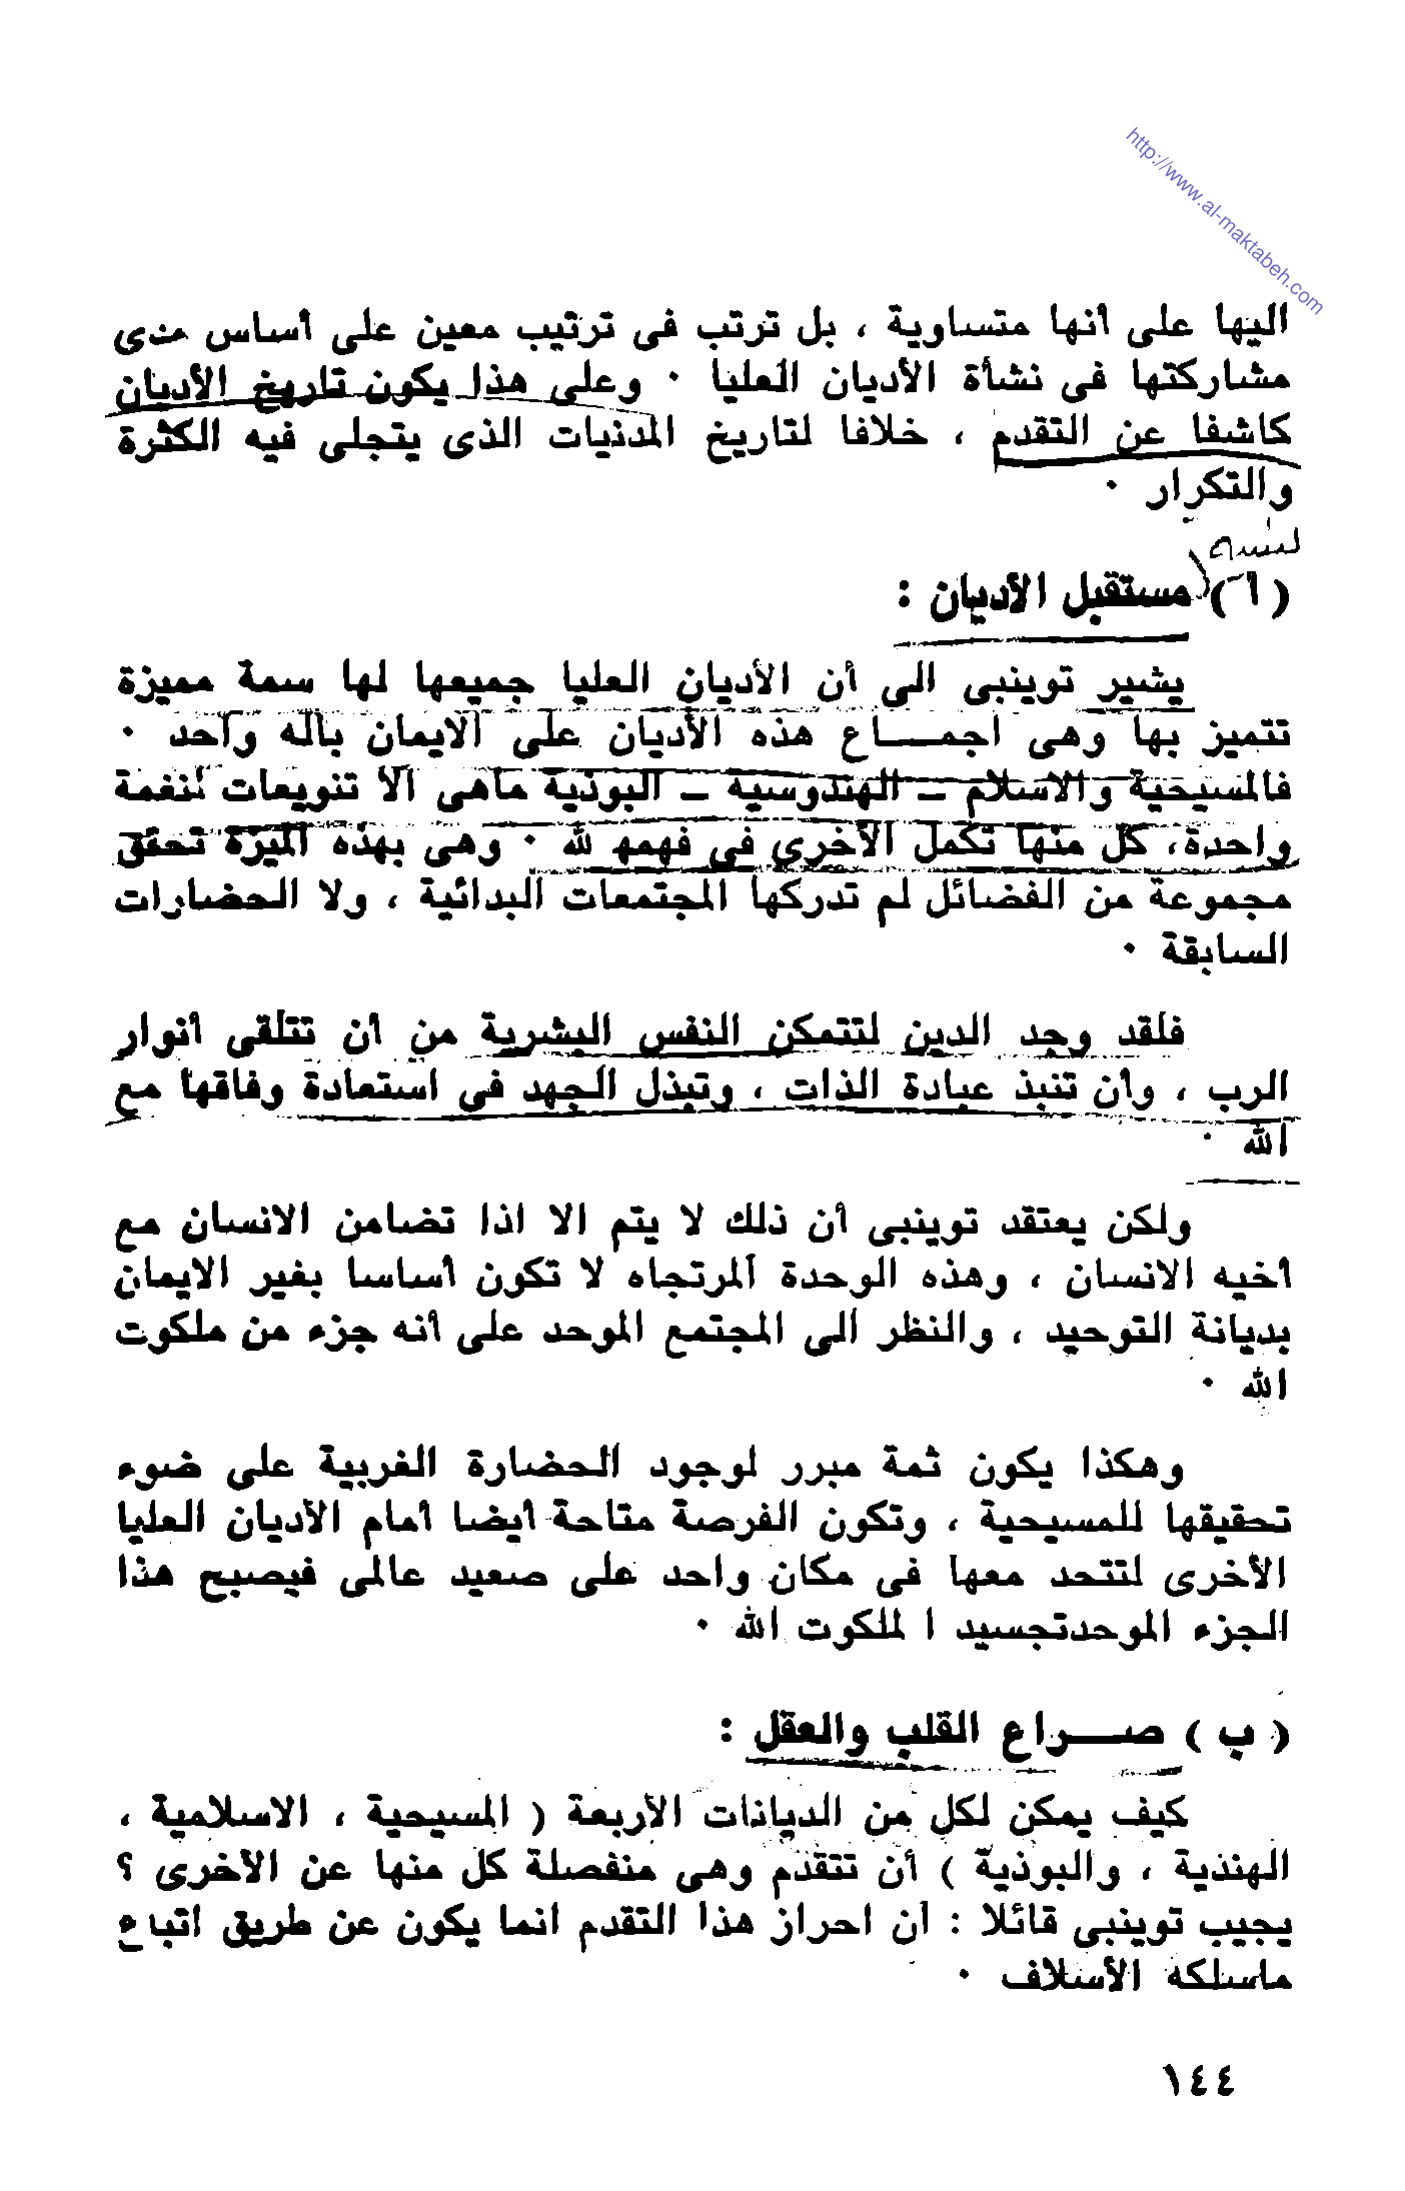 http://www.al-maktabeh.com
اليها على أنها متساوية ، بل ترتب فى ترتيب معين على أساس مدى
مشاركتها فى نشأة الأديان العليا ٠ وعلى هذا يكون تاريخ الأديان
كاشفا عن التقدم ، خلافا لتاريخ المدنيات الذى يتجلى فيه الكثرة
والتكرار ٠
(أ) مستقبل الأديان :
يشير توينبى الى أن الأديان العليا جميعها لها سمة مميزة
تتميز بها وهى اجمـــاع هذه الأديان على الايمان باله واحد ٠
فالمسيحية والاسلام ــ الهندوسيه ــ البوذية ماهى الا تنويعات لنغمة
واحدة، كل منها تكمل الأخرى فى فهمها لله ٠ وهى بهذه الميزة تحقق
مجموعة من الفضائل لم تدركها المجتمعات البدائية ، ولا الحضارات
السابقة ٠
فلقد وجد الدين لتتمكن النفس البشرية من أن تتلقى أنوار
الرب ، وأن تنبذ عبادة الذات ، وتبذل الجهد فى استعادة وفاقها مع
الله ٠
ولكن يعتقد توينبى أن ذلك لا يتم الا اذا تضامن الانسان مع
أخيه الانسان ، وهذه الوحدة المرتجاه لا تكون أساسا بغير الايمان
بديانة التوحيد ، والنظر الى المجتمع الموحد على أنه جزء من ملكوت
الله ٠
وهكذا يكون ثمة مبرر لوجود الحضارة الغربية على ضوء
تحقيقها للمسيحية ، وتكون الفرصة متاحة أيضا أمام الأديان العليا
الأخرى لتتحد معها فى مكان واحد على صعيد عالمى فيصبح هذا
الجزء الموحدتجسيد ا لملكوت الله ٠
( ب ) صـــراع القلب والعقل :
كيف يمكن لكل من الديانات الأربعة ( المسيحية ، الاسلامية ،
الهندية ، والبوذية ) أن تتقدم وهى منفصلة كل منها عن الأخرى ؟
يجيب توينبى قائلا : ان احراز هذا التقدم انما يكون عن طريق اتباع
ماسلكه الأسلاف ٠
١٤٤